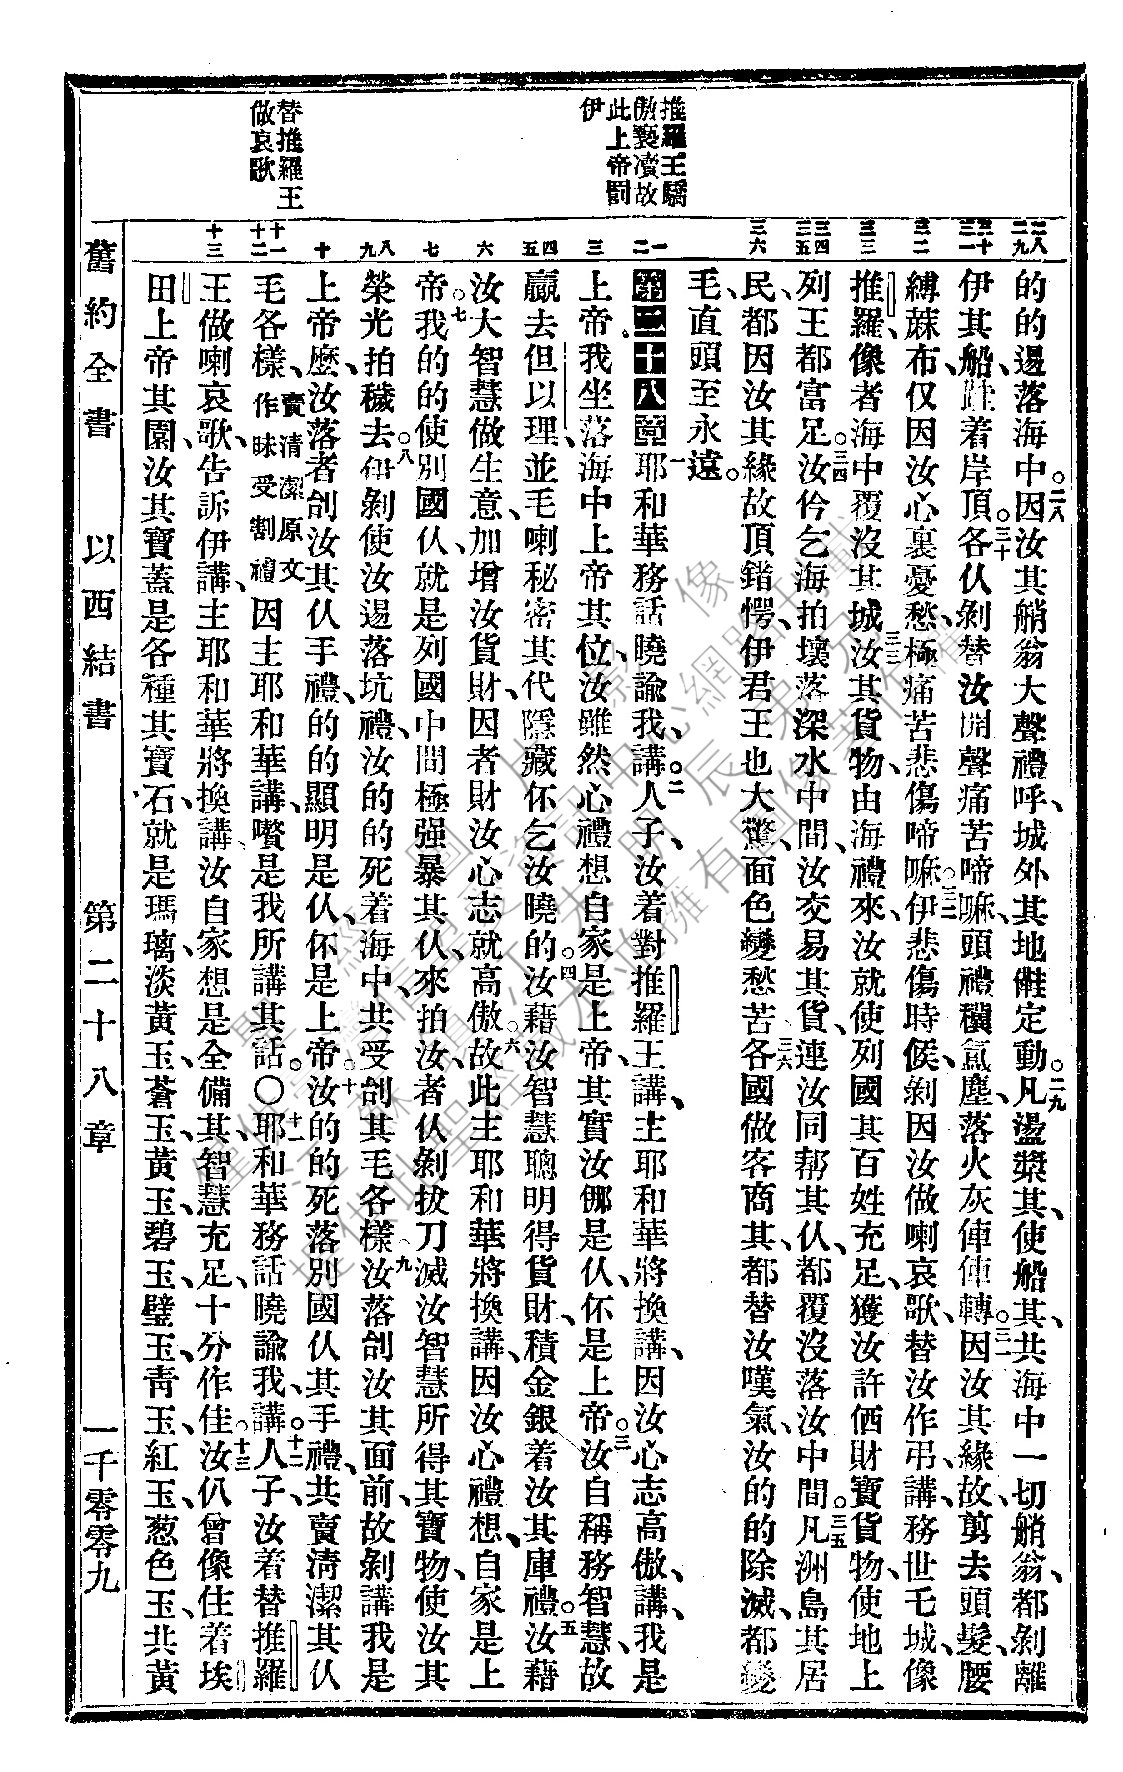 推羅王驕
傲褻瀆故
此上帝罰
伊
替推羅王
做哀歌
二八
二九
三十
三一
三二
三三
三四
三五
三六
一
二
三
四
五
六
七
八
九
十
十一
十二
十三
的的邊落海中因汝其艄翁大聲禮呼、城外其地儺定動。凡盪槳其、使船其、共海中一切艄翁、都剝離
伊其船、跬着岸頂。各仈剝替汝開聲痛苦啼嘛、頭禮䵃氲塵、落火灰俥俥轉。因汝其緣故、剪去頭髮、腰
縛蔴布、仅因汝心裏憂愁、極痛苦悲傷啼嘛。伊悲傷時候、剝因汝做喇哀歌、替汝作弔、講、務世乇城、像
推羅、像者海中覆沒其城。汝其貨物、由海禮來、汝就使列國其百姓充足、獲汝許価財寶貨物、使地上
列王都富足。汝仱乞海拍壞、落深水中間、汝交易其貨、連汝同帮其仈、都覆沒落汝中間。凡洲島其居
民、都因汝其緣故、頂錯愕、伊君王也大驚、面色變愁苦。各國做客商其、都替汝嘆氣、汝的的除滅、都變
毛、直頭至永遠。
第二十八章 耶和華務話曉諭我、講、人子、汝着對推羅王講、主耶和華將換講、因汝心志高傲、講、我是
上帝、我坐落海中上帝其位、汝雖然心禮想自家是上帝、其實汝㑚是仈、伓是上帝。汝自稱務智慧、故
贏去但以理、並毛喇秘密其代隱藏伓乞汝曉的。汝藉汝智慧聰明得貨財、積金銀着汝其庫禮。汝藉
汝大智慧做生意、加增汝貨財、因者財汝心志就高傲。故此主耶和華將換講、因汝心禮想、自家是上
帝。我的的使別國仈、就是列國中間極强暴其仈、來拍汝、者仈剝拔刀滅汝智慧所得其寶物、使汝其
榮光拍穢去。伊剝使汝邊落坑禮、汝的的死着海中、共受刣其毛各樣。汝落刣汝其面前、故剝講我是
上帝麽、汝落者刣汝其仈手禮、的的顯明是仈、伓是上帝。汝的的死落別國仈其手禮、共賣清潔其仈
毛各樣、賣清潔原文作昧受割禮因主耶和華講、嚽是我所講其話。○耶和華務話曉諭我、講。人子、汝着替推羅
王做喇哀歌、告訴伊講、主耶和華將換講、汝自家想是全備其、智慧充足、十分作佳。汝仈曾像住着埃
田上帝其園、汝其寶蓋是各種其寶石、就是瑪璃、淡黃玉、蒼玉、黃玉、碧玉、璧玉、靑玉、紅玉、葱色玉、共黃
舊約全書 以西結書 第二十八章 一千零零九